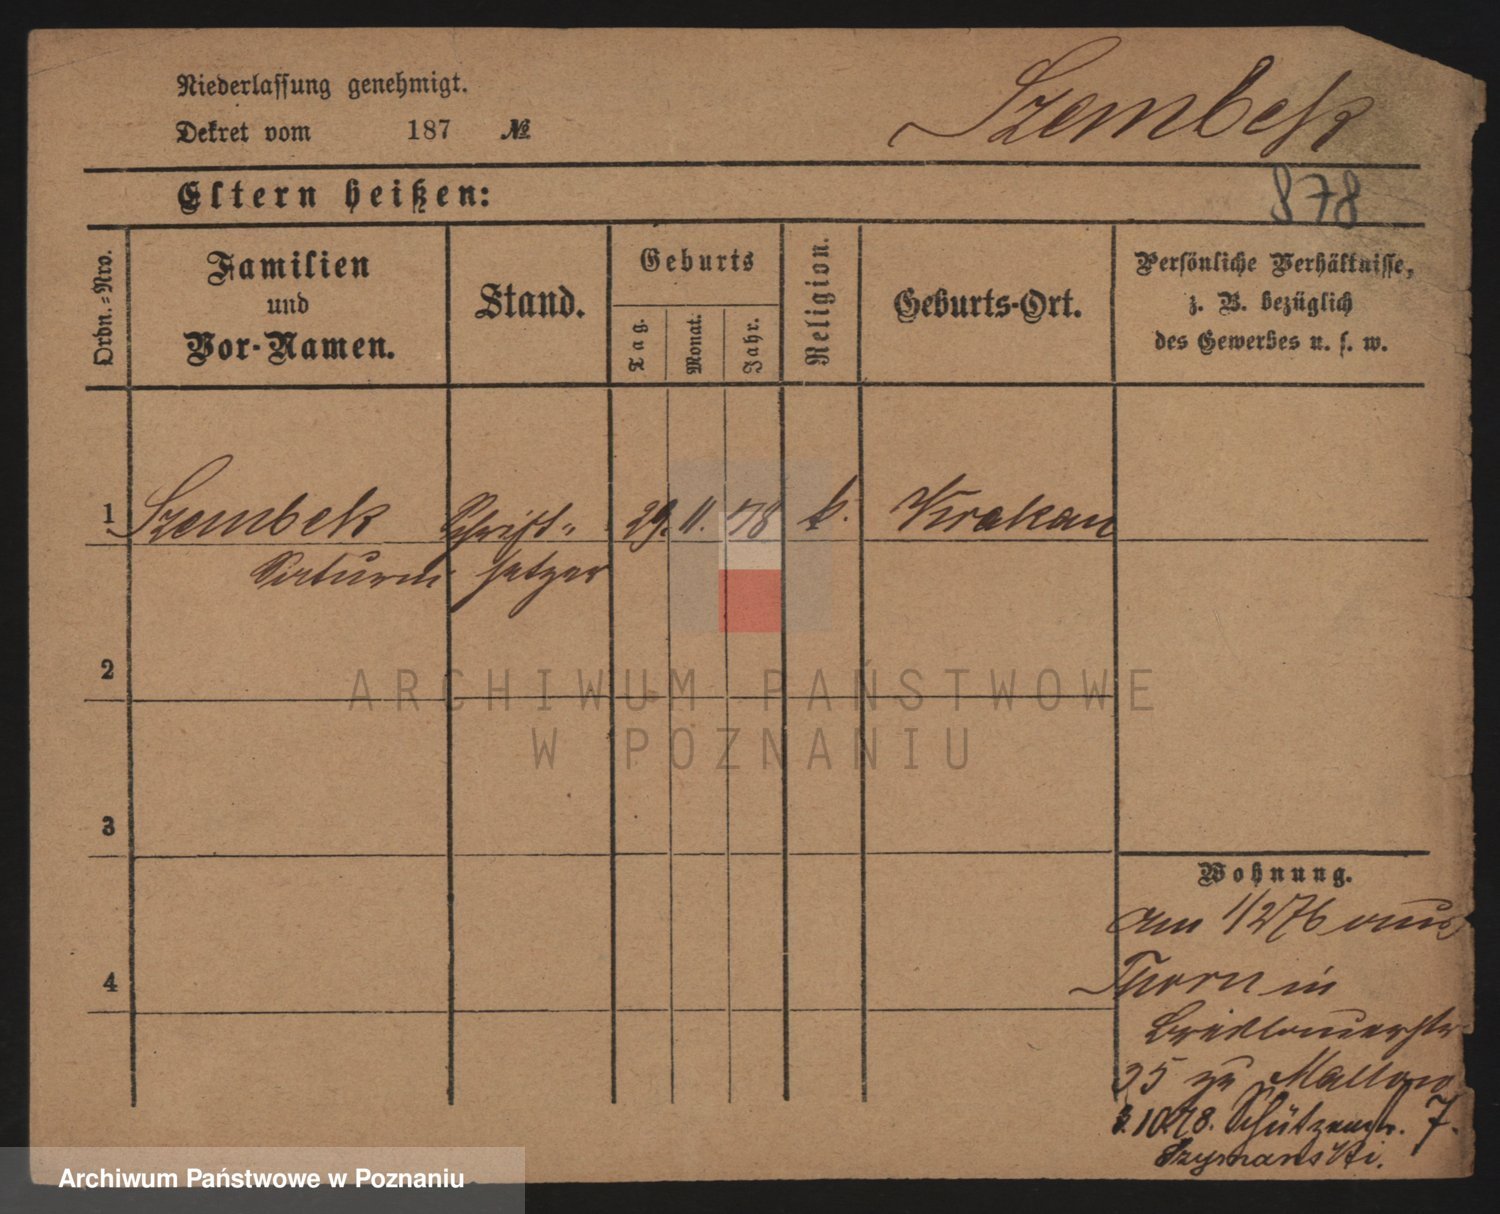 Niederlassung genehmigt.
Dekret vom 187 №
Szembek
Eltern heißen:
878
Ordn.-Nro.
Familien
und
Vor-Namen.
Stand.
Geburts
Tag.
Monat.
Jahr.
Religion.
Geburts-Ort.
Persönliche Verhältnisse,
z. B. bezüglich
des Gewerbes u. s. w.
1 Szembek Schrift- 29. 11. k. Krakau
setzer
2
3
4
Wohnung.
am 1/2 76 aus
Thorn in
Breslauerstr
35 zu
3.10.78. Schützenstr. 7.
Szymanski.
ARCHIWUM PAŃSTWOWE
W POZNANIU
Archiwum Państwowe w Poznaniu